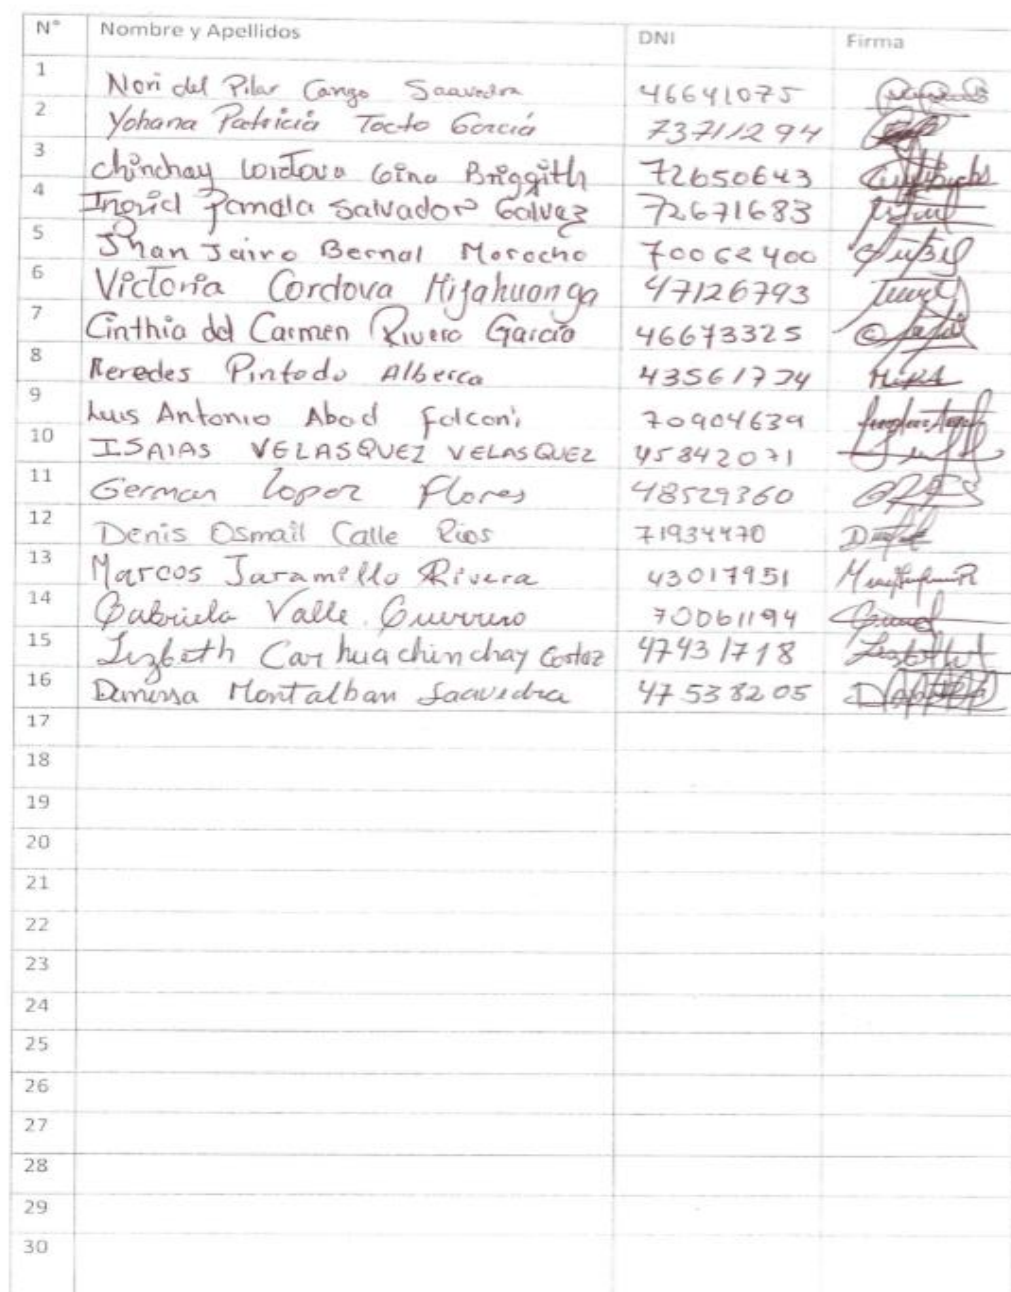 N° Nombre y Apellidos DNI Firma
1 Nori del Pilar Cango Saavedra 46641075
2 Yohana Patricia Tocto Garcia 73711294
3 Chinchay Cordova Gina Briggith 72650643
4 Ingrid Pamela Salvador Galvez 72671683
5 Jhan Jairo Bernal Morocho 70062400
6 Victoria Cordova Hijahuanga 47126793
7 Cinthia del Carmen Rivero García 46673325
8 Meredes Pintado Alberca 43561774
9 Luis Antonio Abad Falconi 70904639
10 ISAIAS VELASQUEZ VELASQUEZ 45842071
11 German Lopez Flores 48529360
12 Denis Osmail Calle Rios 71934470
13 Marcos Jaramillo Rivera 43017951
14 Gabriela Valle Guerrero 70061194
15 Lizbeth Carhuachinchay 47431718
16 Montalban Saavedra 47538205
17
18
19
20
21
22
23
24
25
26
27
28
29
30